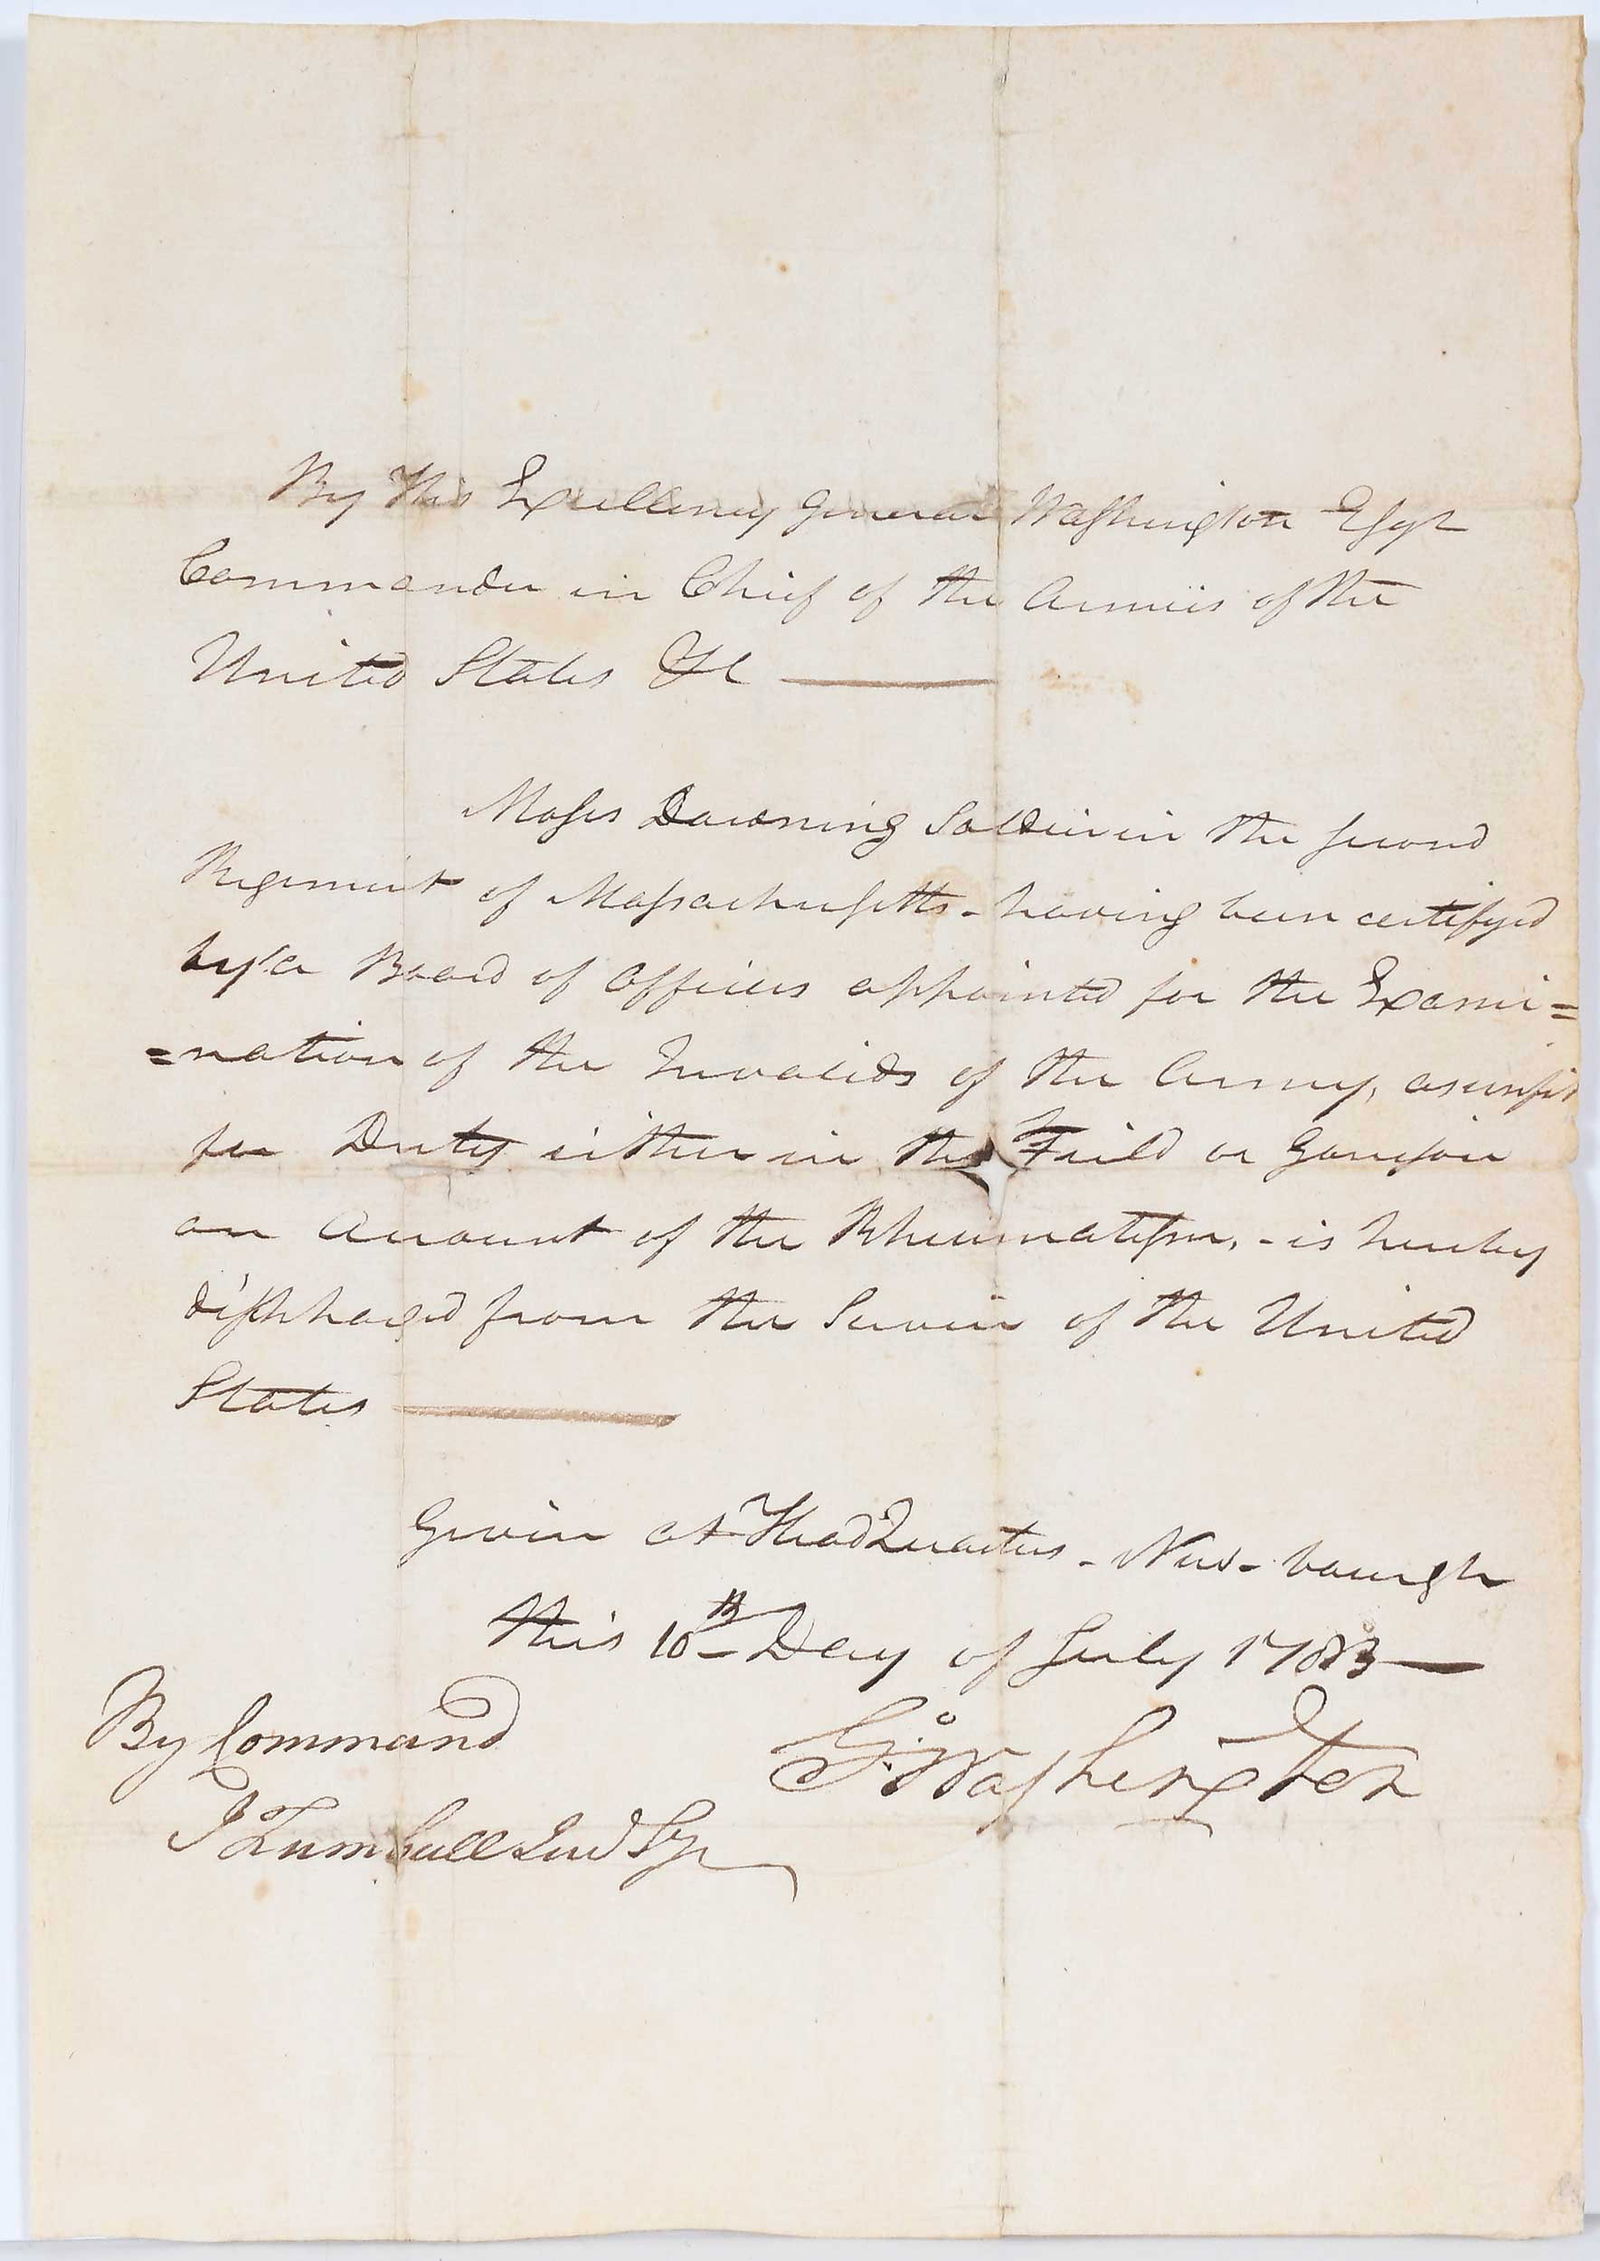 By His Excellency General Washington Esqr
Commander in Chief of the Armies of the
United States &c
Moses Downing Soldier in the second
Regiment of Massachusetts - having been certifyed
by a Board of Officers appointed for the Exami=
=nation of the Invalids of the Army, as unfit
for Duty either in the Feild or Garrison
on Account of the Rheumatism, - is hereby
discharged from the Service of the United
States
Given at Head Quarters - New-bourgh
this 10th Day of July 1783
By Command
G:o Washington
J Trumbull Jun Sy